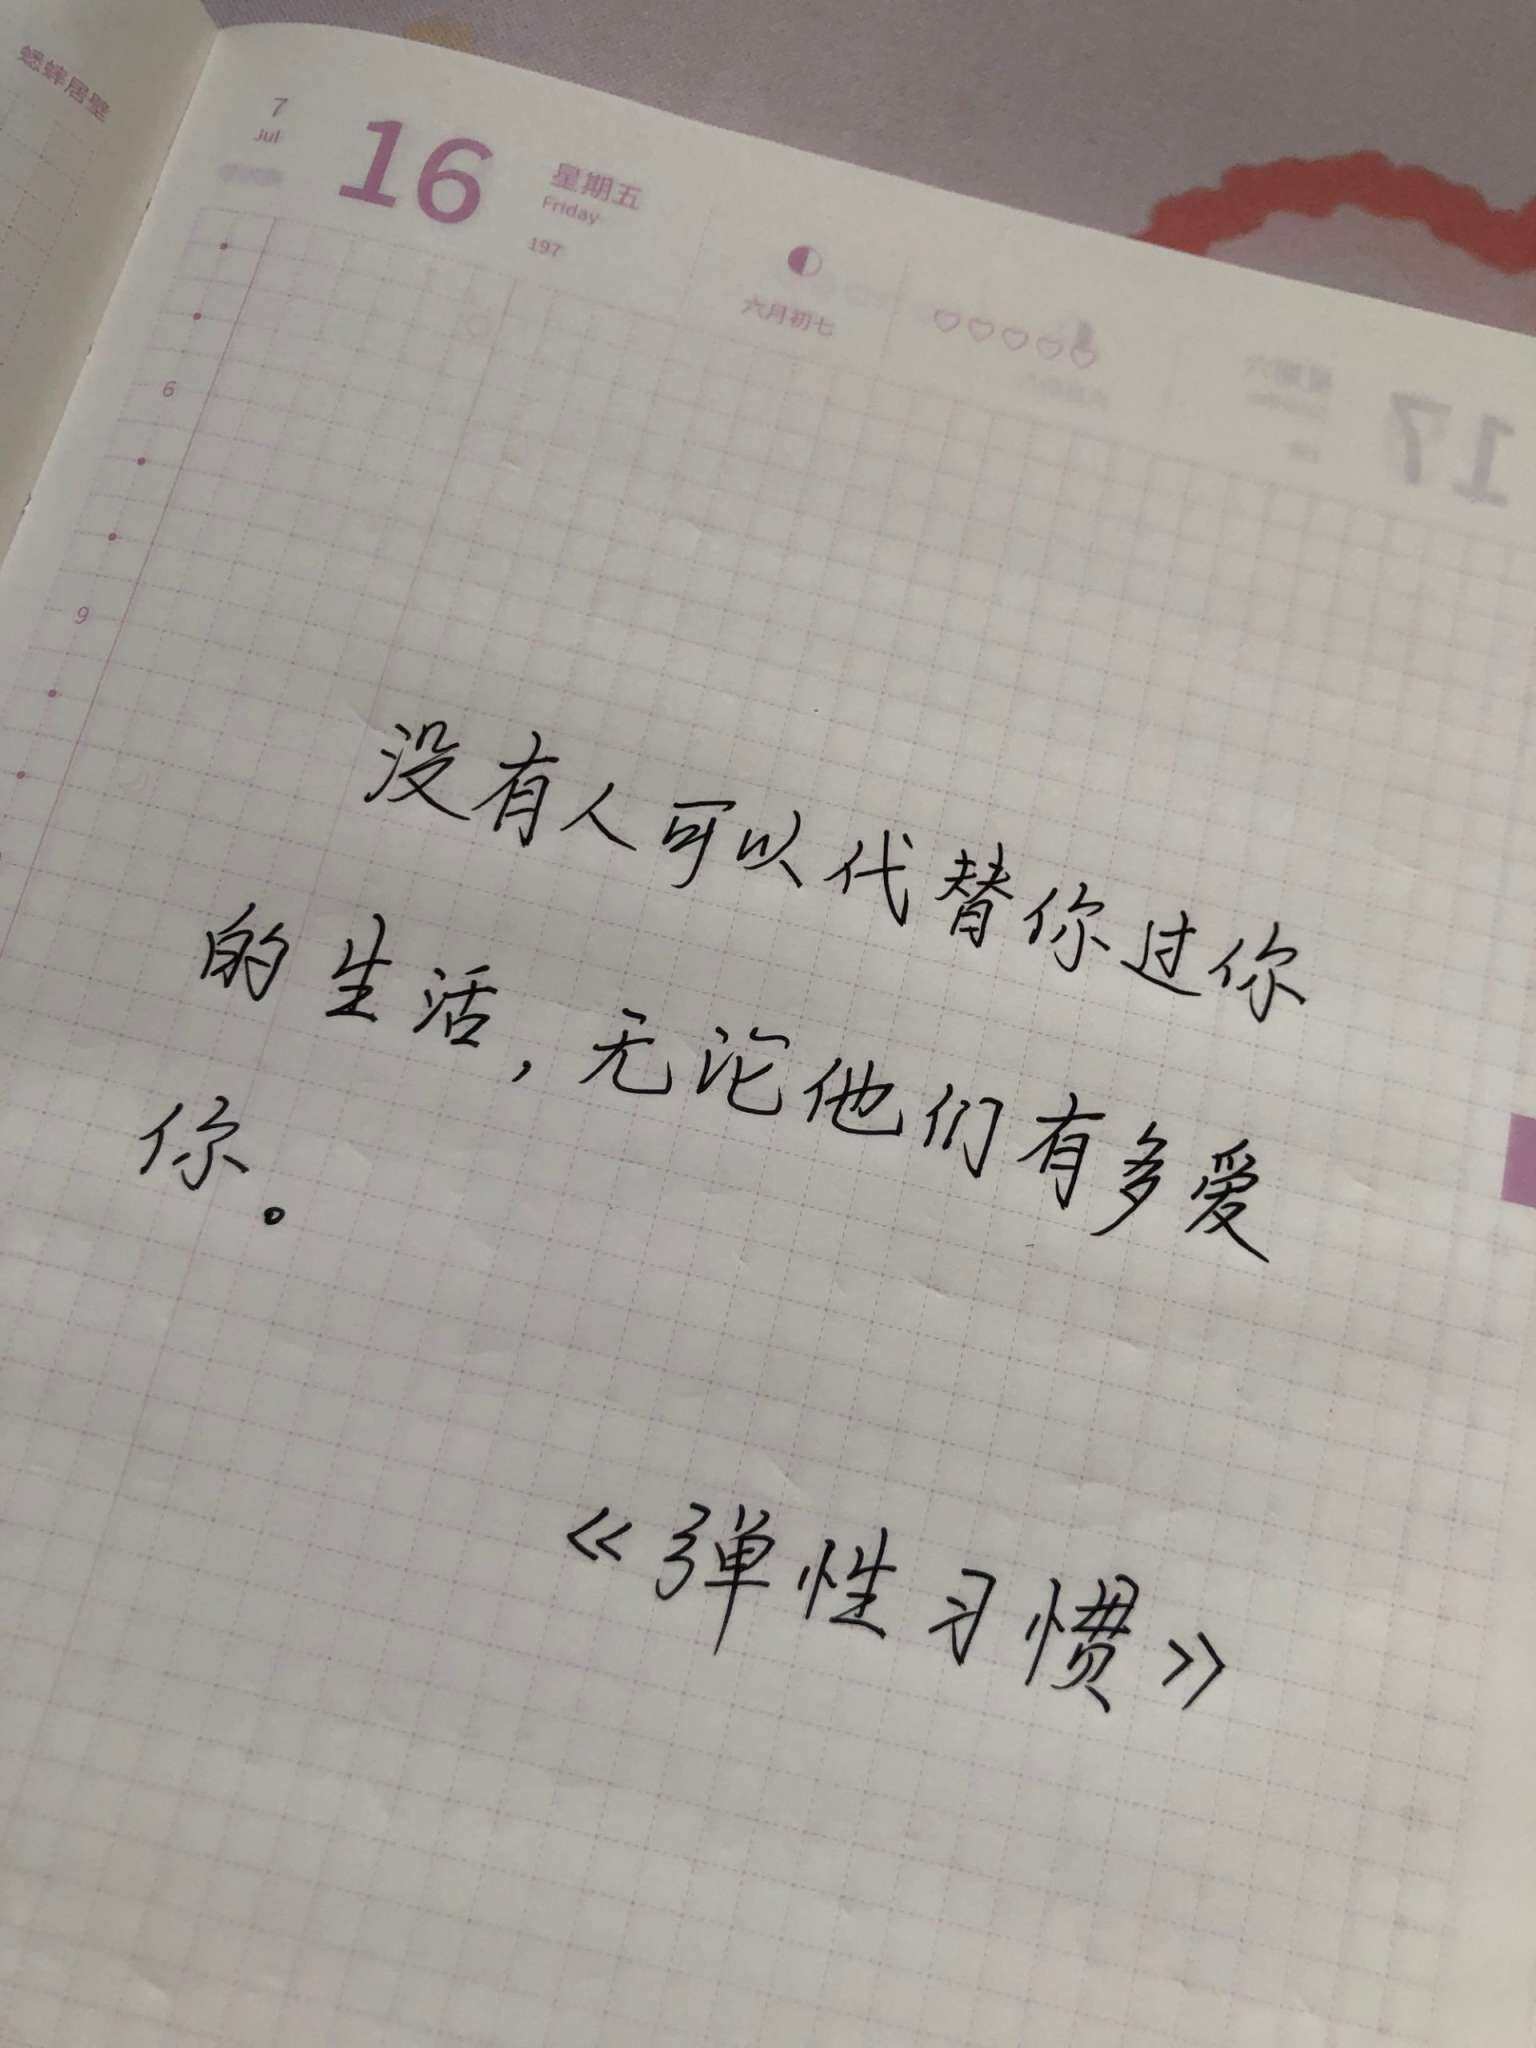 蟋蟀居壁
7
Jul
16
星期五
Friday
197
六月初七
17
6
9
没有人可以代替你过你
的生活，无论他们有多爱
你。
《弹性习惯》